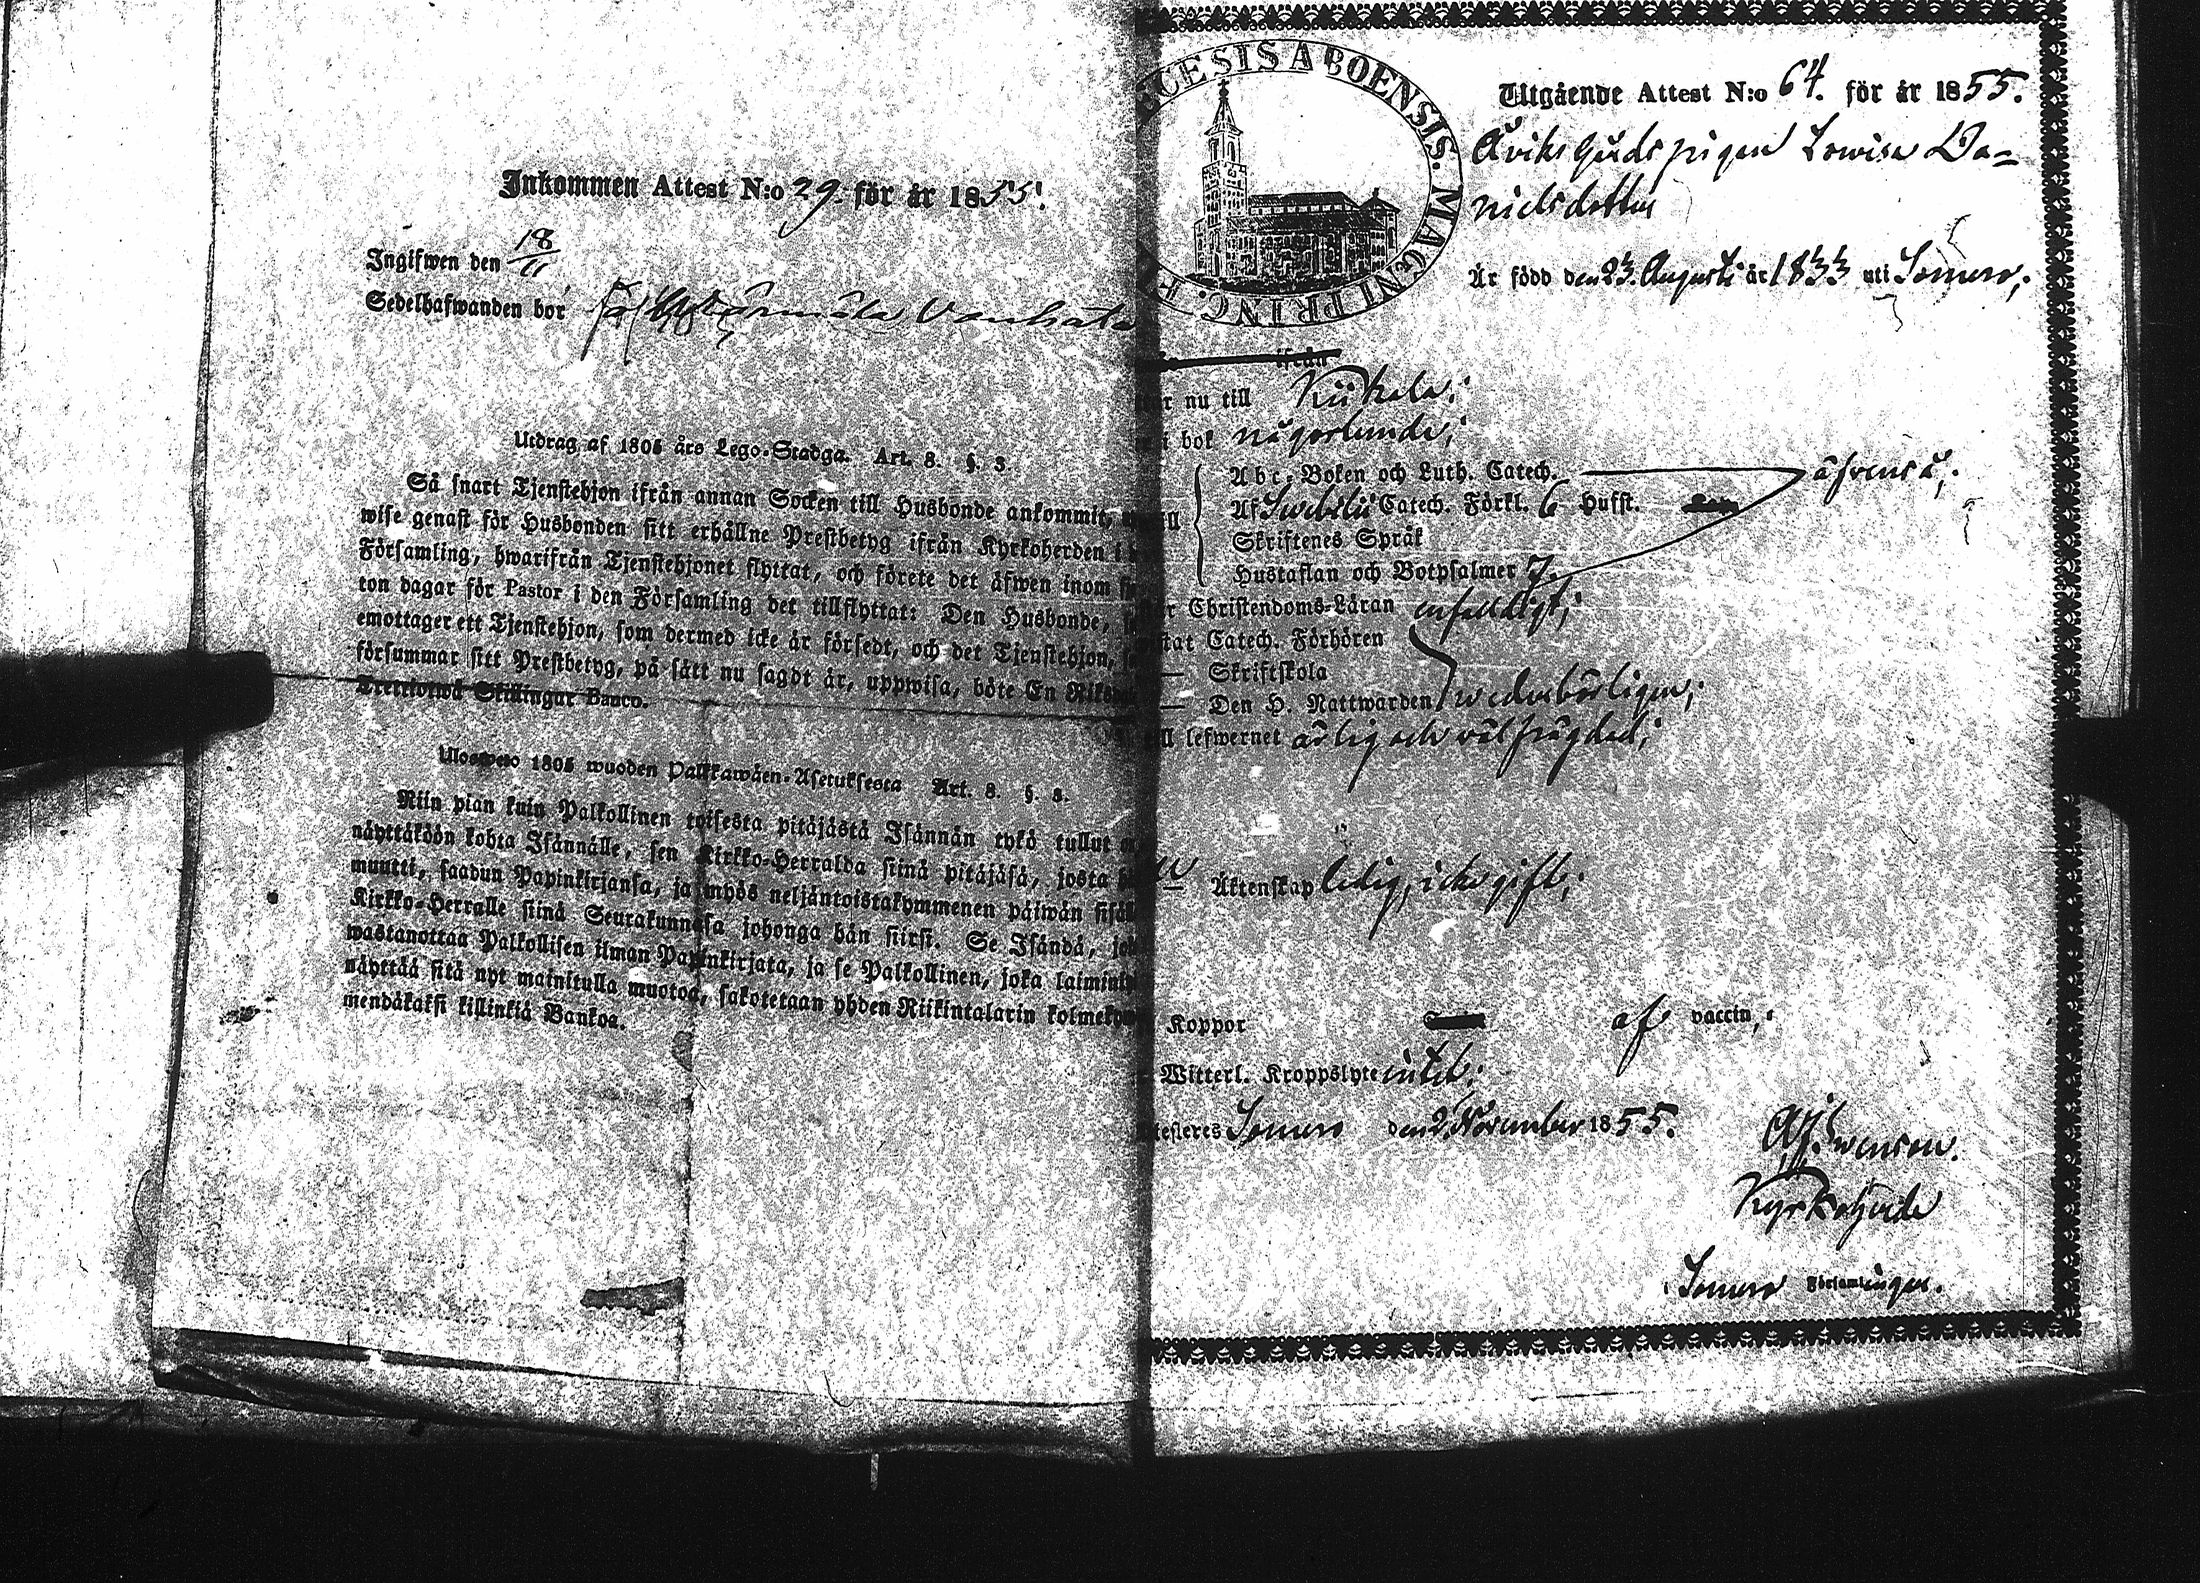 Inkommen Attest N:o 29. för år 1855.
Ingifwen den 18/11
Sedelhafwanden bor på Vanhala
Utdrag af 1805 års Lego-Stadga. Art. 8. §. 3.
Så snart Tjenstehjon ifrån annan Socken till Husbonde ankommit,
wise genast för Husbonden sitt erhållne Prestbetyg ifrån Kyrkoherden i
Församling, hwarifrån Tjenstehjonet flyttat, och förete det äfwen inom
ton dagar för Pastor i den Församling det tillflyttat: Den Husbonde,
emottager ett Tjenstehjon, som dermed icke är försedt, och det Tjenstehjon,
försummar sitt Prestbetyg, på sätt nu sagdt är, uppwisa, böte En
Trettiotwå Skillingar Banco.
Uloswero 1805 wuoden Palkkawäen-Asetuksesta Art. 8. §. 3.
Niin pian kuin Palkollinen toisesta pitäjästä Isännän tykö tullut
näyttäköön kohta Isännälle, sen Kirkko-Herralda siinä pitäjäsä, josta
muutti, saadun Papinkirjansa, ja myös neljäntoistakymmenen päiwän
Kirkko-Herralle siinä Seurakunnasa johonga hän siirsi. Se Isändä,
wastanottaa Palkollisen ilman Papinkirjata, ja se Palkollinen, joka
näyttää sitä nyt mainitulla muotoa, sakotetaan yhden Riikintalarin
mendäkaksi killinkiä Bankoa.
ECESIS ABOENSIS. MAGNI PRINC. F
Utgående Attest N:o 64. för år 1855.
Lowisa Da=
nielsdotter
Är född den 23. Augusti år 1833 uti Somero;
ifrån
nu till Kiikala;
i bok någorlunda;
Abc-Boken och Luth. Catech.
Af Swebelii Catech. Förkl. 6 Hufst.
Skriftenes Språk
Hustaflan och Botpsalmer 7.
Christendoms-Läran enfaldigt;
Catech. Förhören
Skriftskola
Den H. Nattwarden wederbörligen;
lefwernet ärlig och väl frägdad;
Äktenskap ledig, icke gift;
Koppor af vaccin;
Witterl. Kroppslyte intet;
Somero den 2 November 1855.
Swenson.
Kyrkoherde
Somero Församlingen.